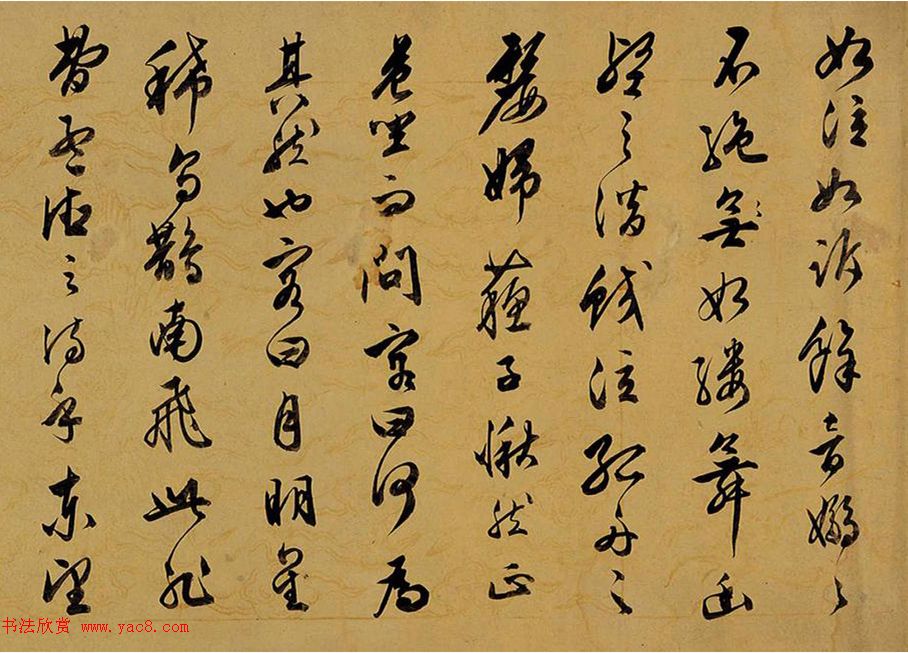 如泣如訴餘音嫋〻
不絕無如縷舞幽
壑之潛蛟泣孤舟之
嫠婦蘇子愀然正
危坐而問客曰何為
其然也客曰月明星
稀烏鵲南飛此非
曹孟德之詩乎東望
书法欣赏 www.yac8.com